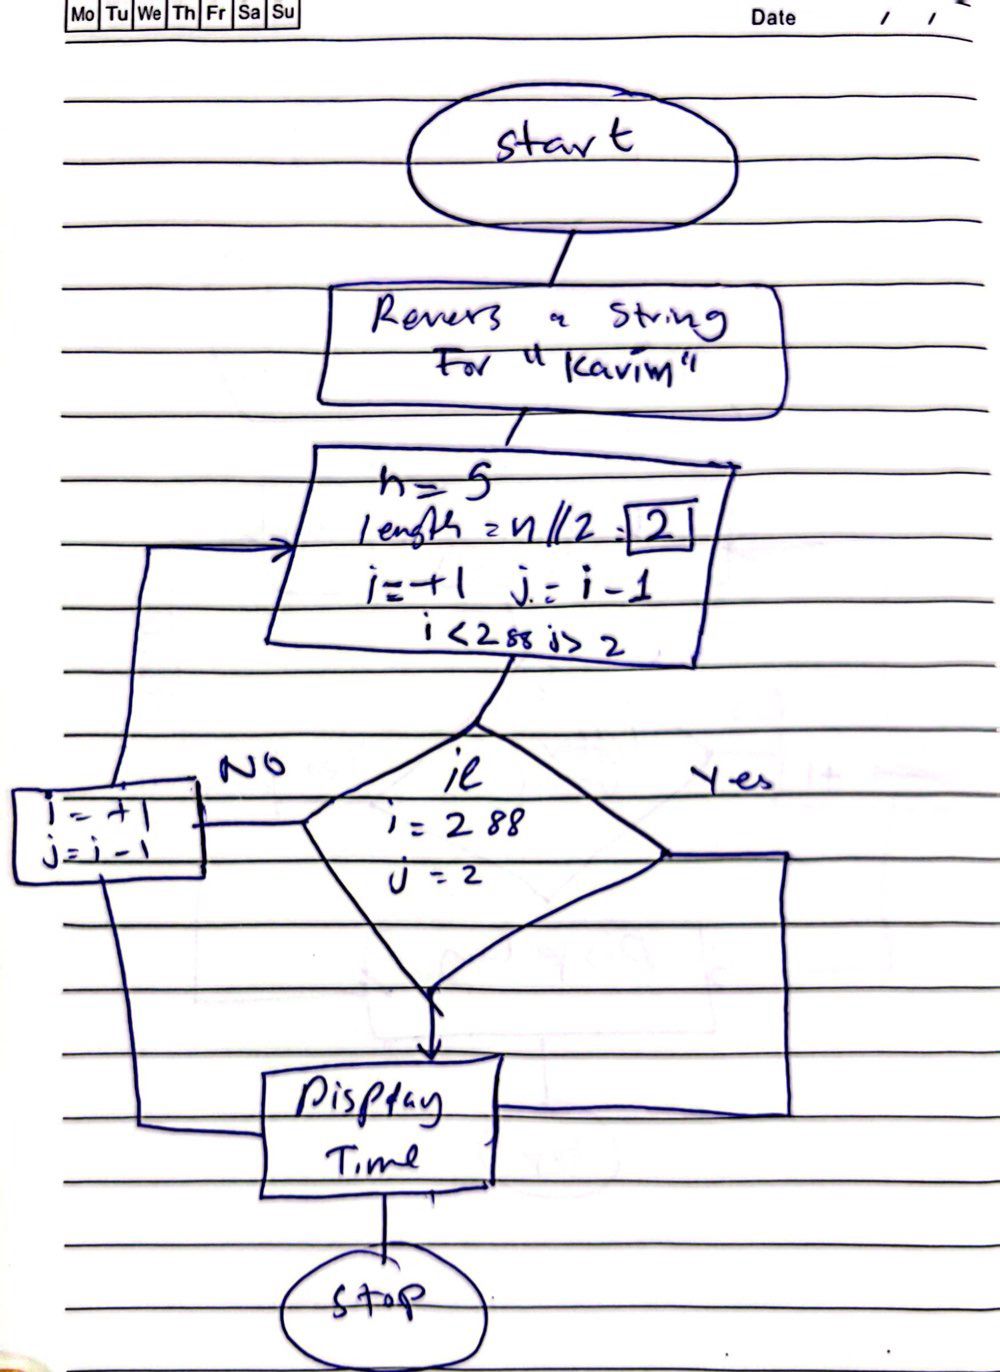 Mo Tu We Th Fr Sa Su
Date / /
start
Revers a string
For "Karim"
n = 5
length = n//2 = 2
i=+1 j = i-1
i <2 && j> 2
NO
Yes
if
i = 2 &&
j = 2
i = +1
j = i-1
Display
Time
stop